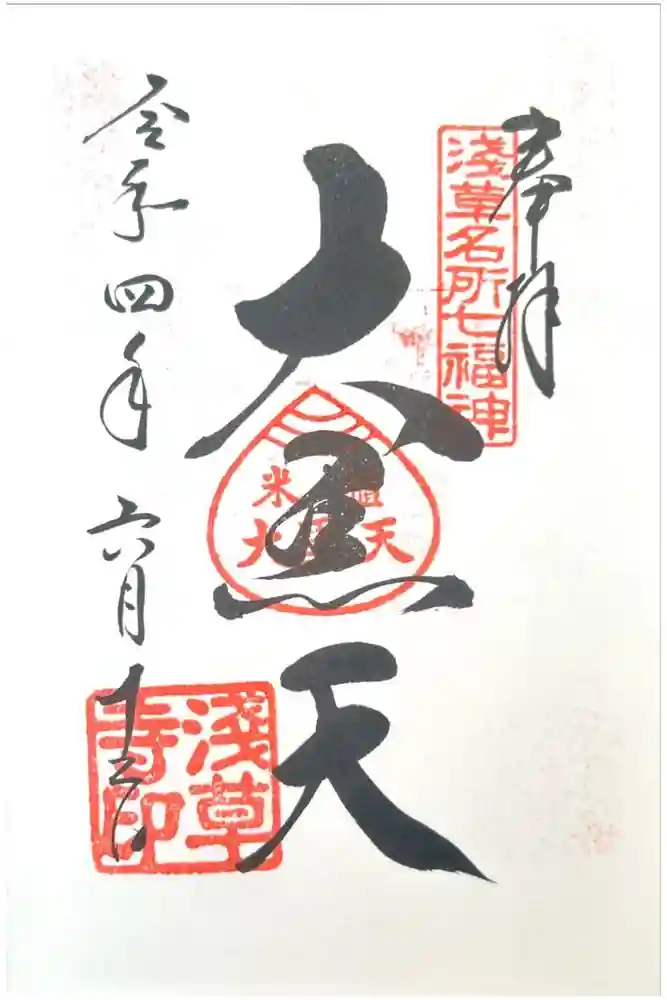 奉拝
淺草名所七福神
大黒天
米 大 天
令和四年六月十三日
淺草寺印